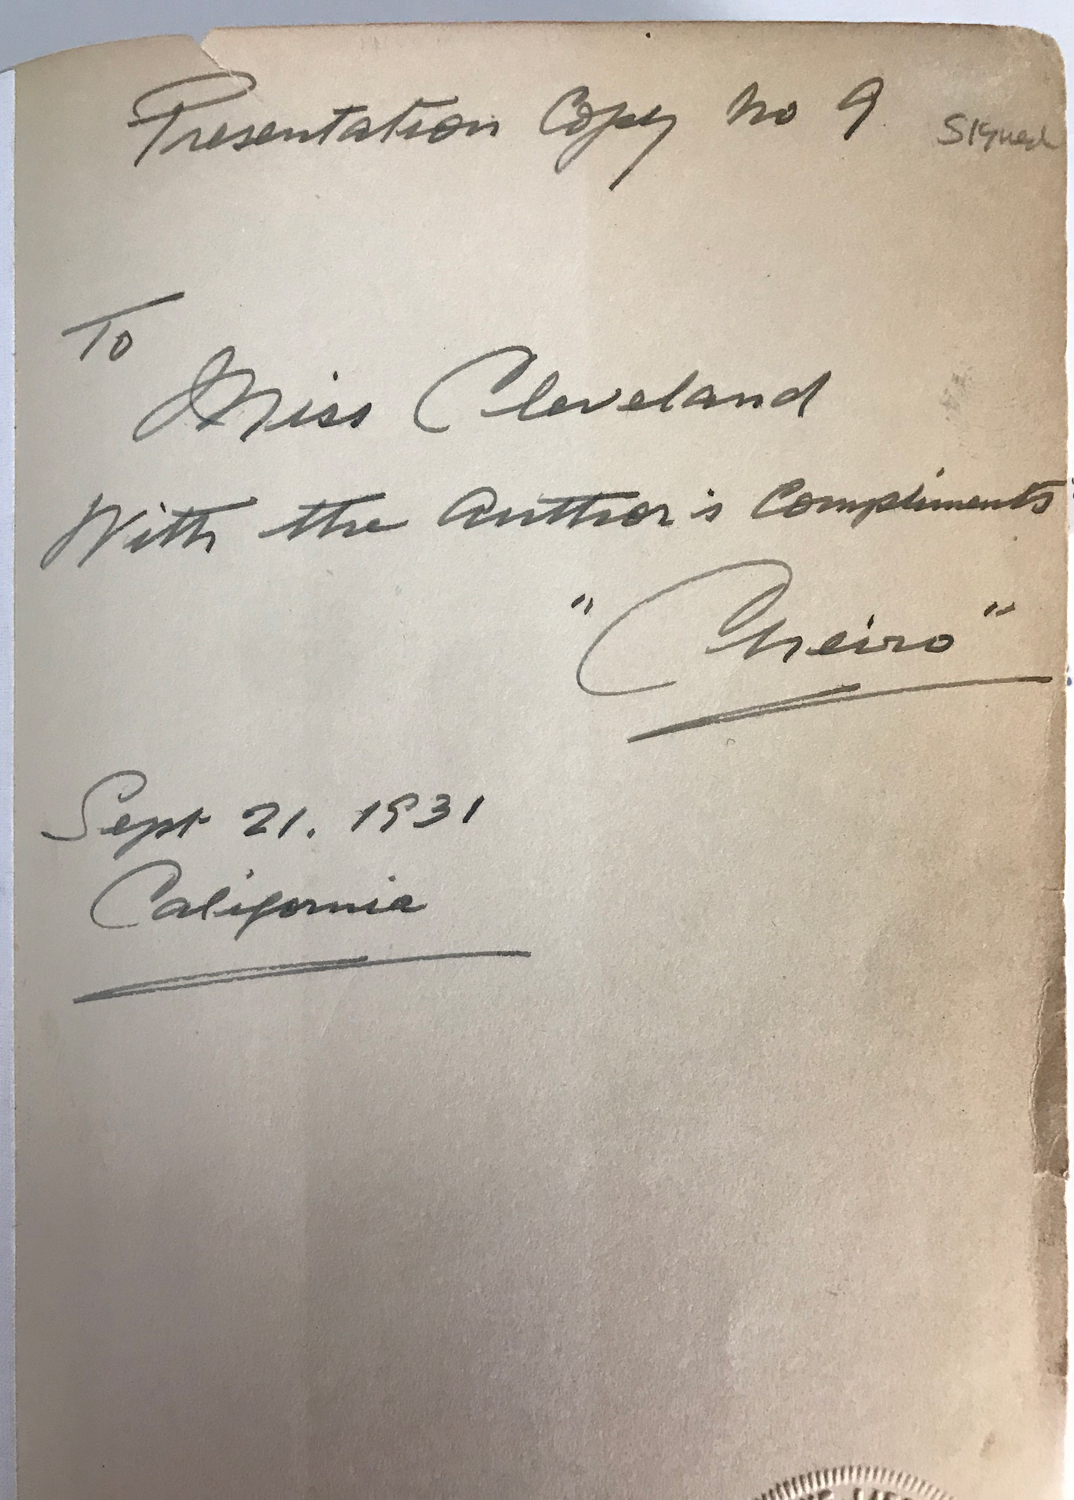 Presentation Copy No 9
Signed
To
Miss Cleveland
With the Author's Compliments
"Cheiro"
Sept 21. 1931
California